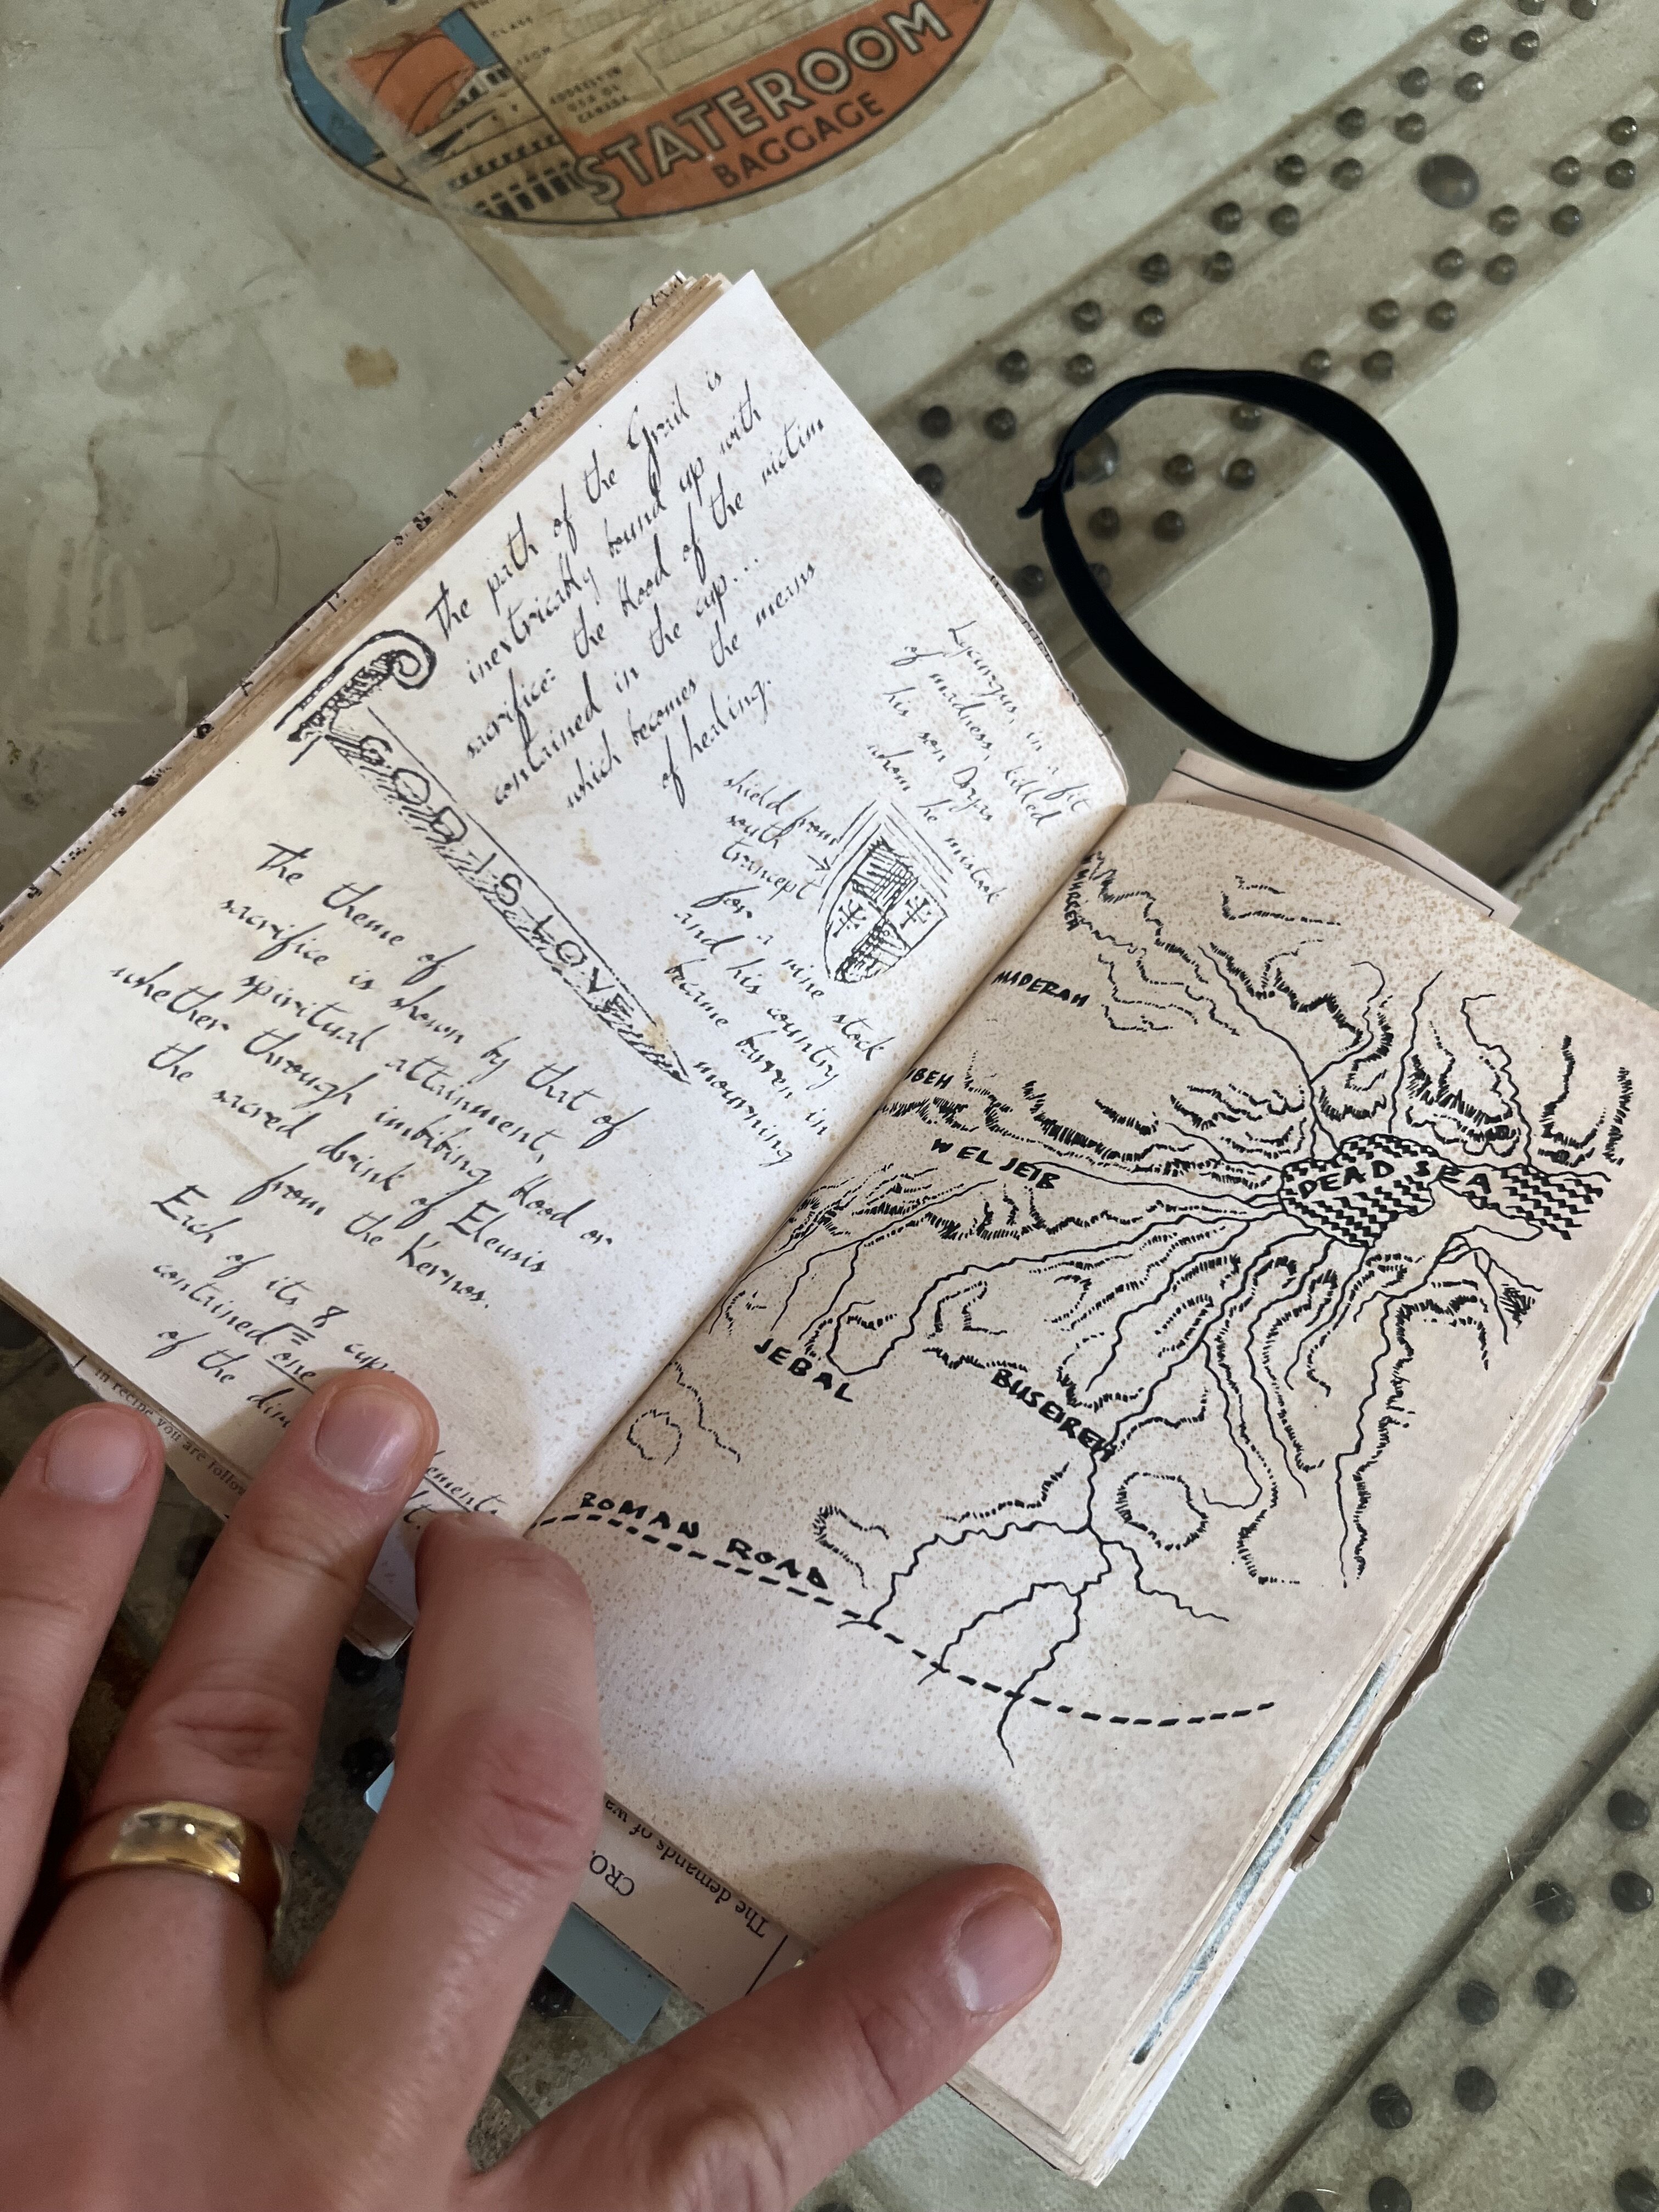 STATEROOM
BAGGAGE
CLASS
ADDRESS IN
USA OR
CANADA
The path of the Grail is
inextricably bound up with
sacrifice: the blood of the victim
contained in the cup...
which becomes the means
of healing.
GOD IS LOVE
Lycurgus, in a fit
of madness, killed
his son Dryas
whom he mistook
for a vine stock
and his country
became barren in
mourning
shield from
south
trancept
The theme of
sacrifice is shown by that of
spiritual attainment,
whether through imbibing blood or
the sacred drink of Eleusis
from the Kernos.
Each of its 8 cups
contained one
of the
MADERAH
IBEH
W EL JEIB
DEAD SEA
JEBAL
BUSEIREH
ROMAN ROAD
in recipe you are follow
The demands of wa
CRO